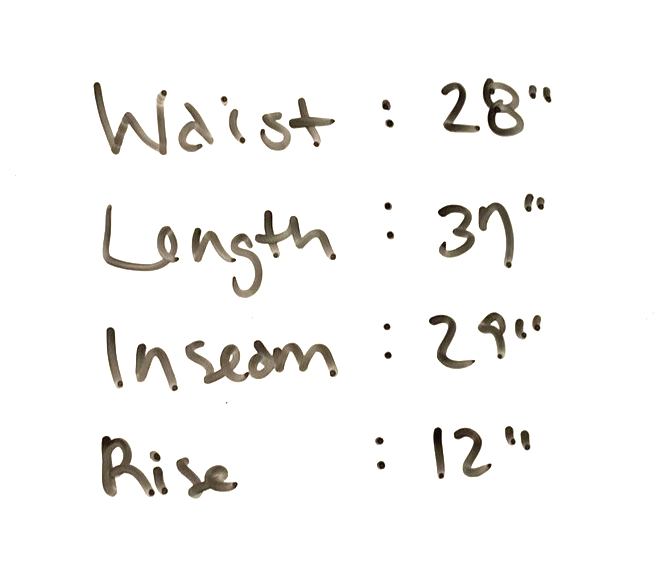 Waist : 28"
Length : 37"
Inseam : 29"
Rise : 12"